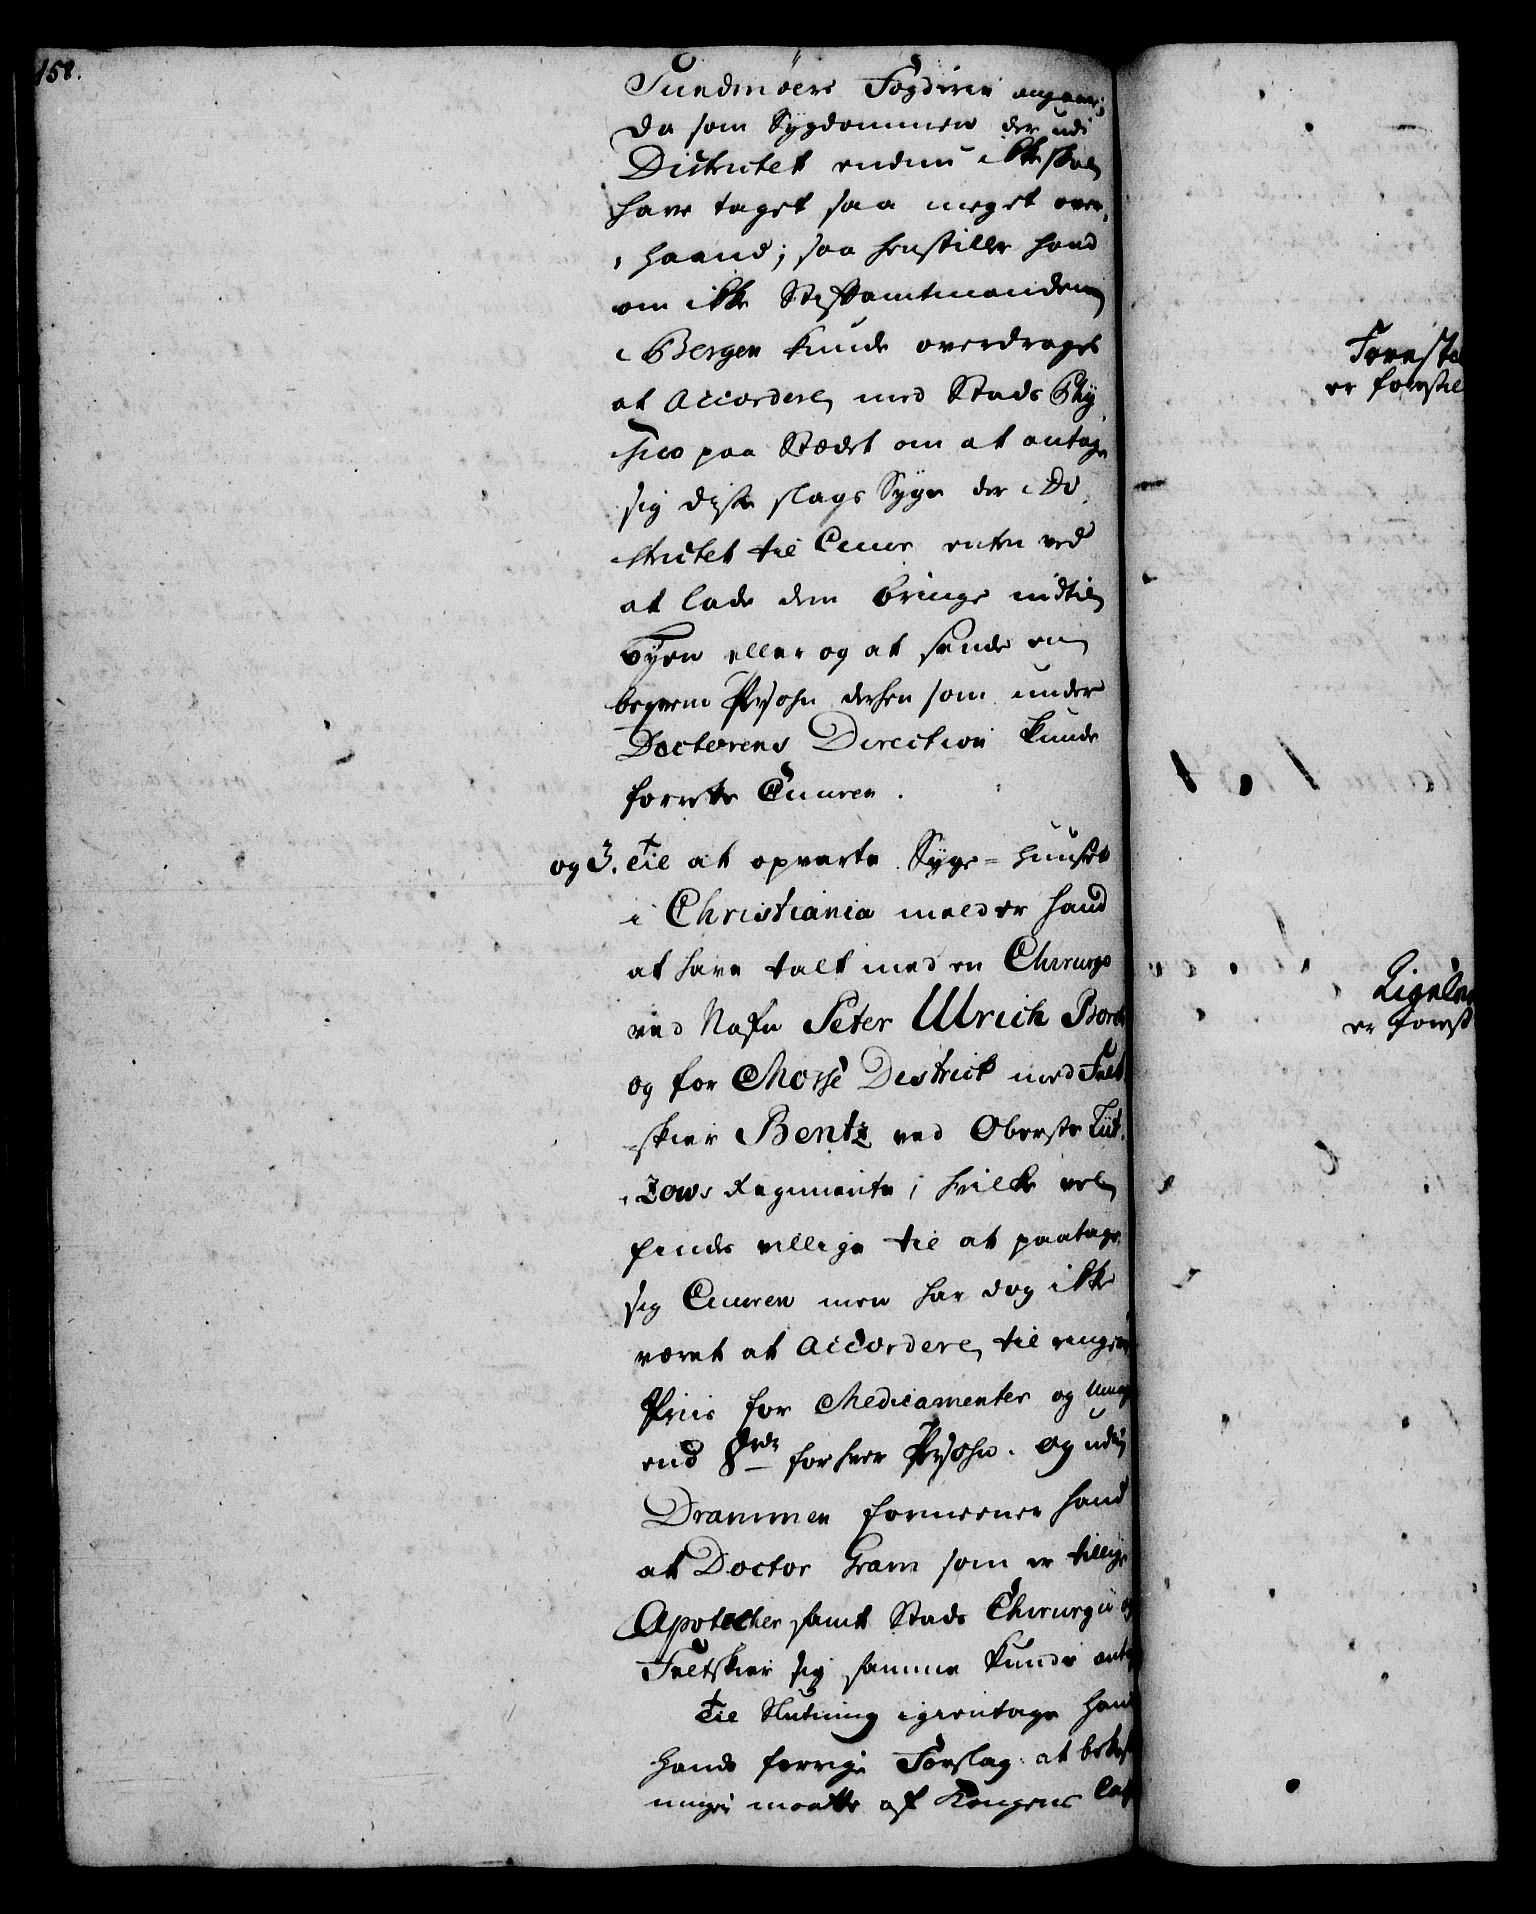 158.
Sundmöers Fogderie angaaer;
da som Sygdommen der udi
Districtet endnu ikke skal
have taget saa meget over,
, haand; saa henstiller hand
om ikke Stiftamtmanden
i Bergen kunde overdrages
at accordere med Stads Phy,
sico paa Stædet om at antage
sig disse slags Syge der i Di,
strictet til Cuur enten ved
at lade dem bringe ind til
Byen eller og at sende en
beqvem Persohn derhen som under
Doctorens Direction kunde
forrette Cuuren.
og 3. til at opvarte Syge-huuset
i Christiania melder hand
at have talt med en Chirurgo
ved Nafn Peter Ulrich
og for Mosse District med Felt
skier Bentz ved Oberste Lüt,
,zows Regimente; hvilke vel
findes villige til at paatage
sig Cuuren men har dog ikke
været at accordere til ringere
Priis for Medicamenter og
end 8 rdr for hver Persohn. Og udi
Drammen formeener hand
at Doctor Gram som er tillige
Apotecher samt Stads Chirurgi og
Feltskier sig samme kunde antage
Til Slutning igientager hand
hands forrige Forslag at
maatte af Kongens
Foresta
er forestil
Ligele
er forest